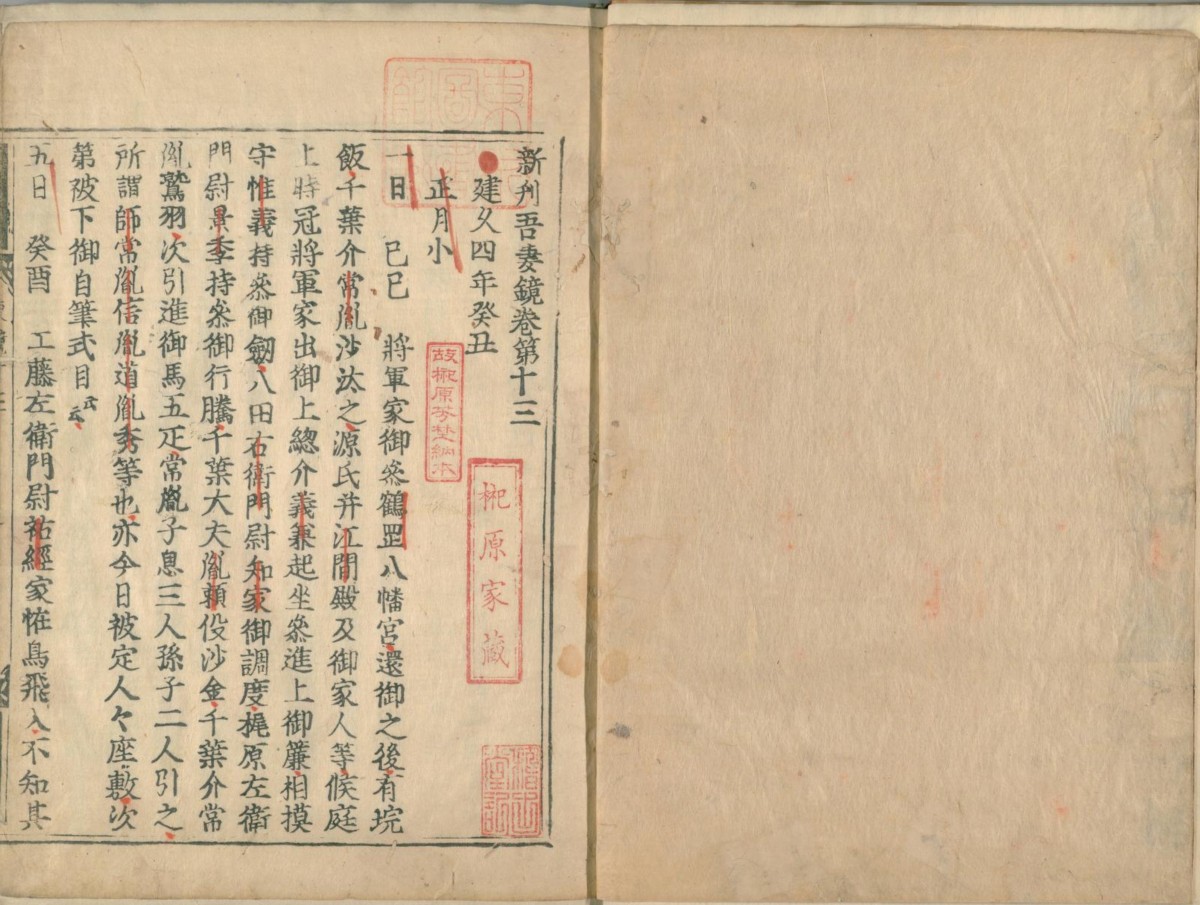 新刋吾妻鏡卷第十三
建久四年癸丑
正月小
一日 己巳 將軍家御參鶴罡八幡宮還御之後有垸
飯千葉介常胤沙汰之源氏并江間殿及御家人等候庭
上時冠將軍家出御上總介義兼起坐參進上御簾相摸
守惟義持參御劔八田右衛門尉知家御調度梶原左衛
門尉景季持參御行騰千葉大夫胤頼役沙金千葉介常
胤鷲羽次引進御馬五疋常胤子息三人孫子二人引之
所謂師常胤信胤道胤秀等也亦今日被定人々座敷次
第被下御自筆式目云云
五日 癸酉 工藤左衛門尉祐經家恠鳥飛入不知其
故榊原芳埜納本
榊原家藏